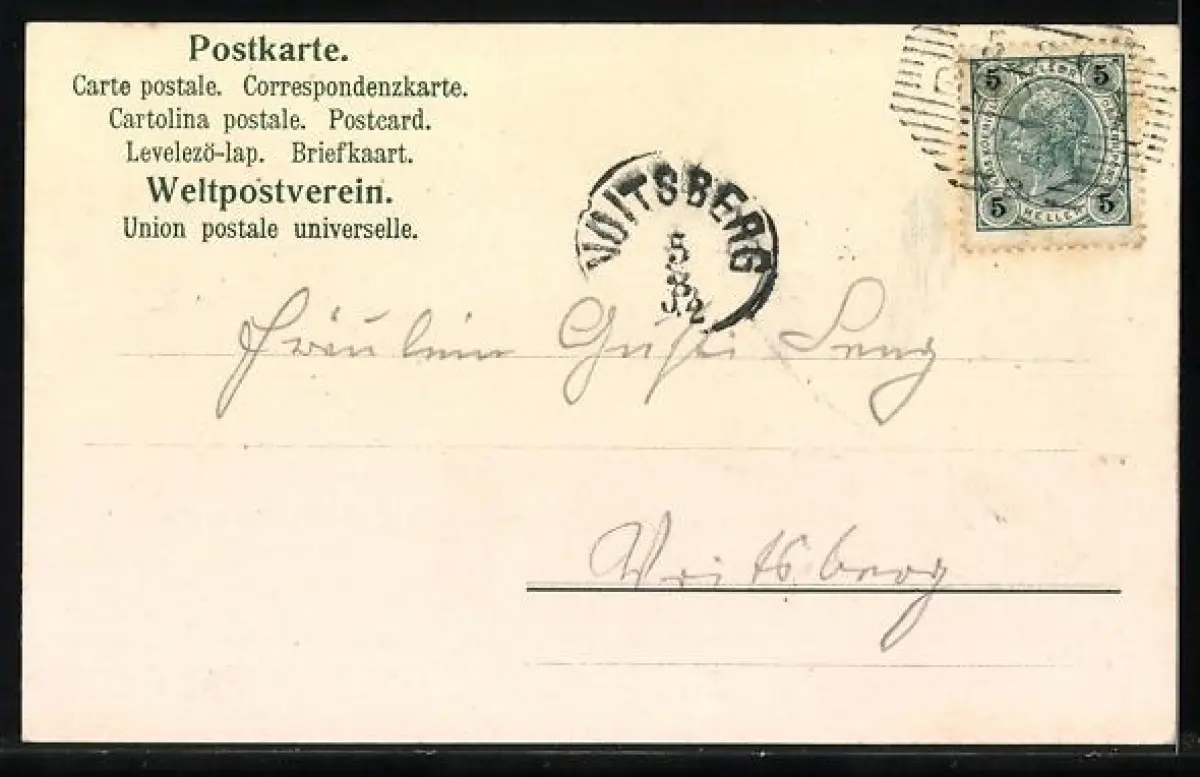 Postkarte.
Carte postale. Correspondenzkarte.
Cartolina postale. Postcard.
Levelezö-lap. Briefkaart.
Weltpostverein.
Union postale universelle.
5 HELLER 5
5 HELLER 5
VOITSBERG
5
8
02
Fräulein Gusti
Voitsberg